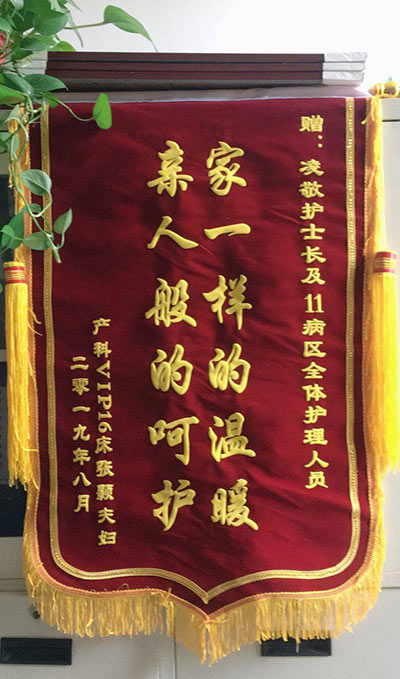 赠：凌敬护士长及11病区全体护理人员
家一样的温暖
亲人般的呵护
产科VIP16床张颖夫妇
二零一九年八月